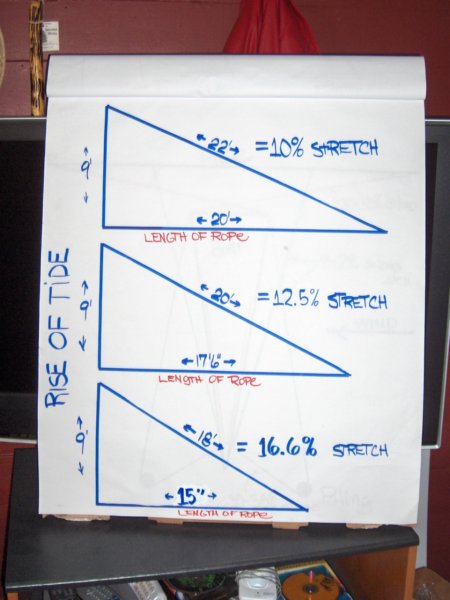 RISE OF TIDE
9'
22' = 10% STRETCH
20'
LENGTH OF ROPE
9'
20' = 12.5% STRETCH
17'6"
LENGTH OF ROPE
9'
18' = 16.6% STRETCH
15"
LENGTH OF ROPE